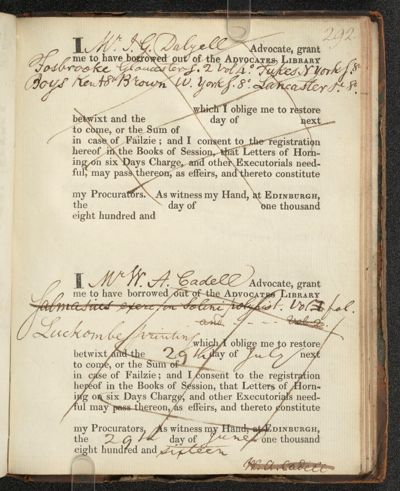 292
I Mr J. G. Dalyell Advocate, grant
me to have borrowed out of the ADVOCATES LIBRARY
Fosbrooke Gloucesters. 2 Vol 4o. Tukes N Yorks. 8o
Boys Kent 8o Brown W. York. 8o. Lancaster 8o.
which I oblige me to restore
betwixt and the day of next
to come, or the Sum of
in case of Failzie ; and I consent to the registration
hereof in the Books of Session, that Letters of Horn-
ing on six Days Charge, and other Executorials need-
ful, may pass thereon, as effeirs, and thereto constitute
my Procurators. As witness my Hand, at EDINBURGH,
the day of one thousand
eight hundred and
I Mr W. A. Cadell Advocate, grant
me to have borrowed out of the ADVOCATES LIBRARY
Salmasius exerc. in Solini polyhist. Vol 1 fol.
and Vol 2
Luckombe printing
which I oblige me to restore
betwixt and the 29th day of July next
to come, or the Sum of
in case of Failzie ; and I consent to the registration
hereof in the Books of Session, that Letters of Horn-
ing on six Days Charge, and other Executorials need-
ful may pass thereon, as effeirs, and thereto constitute
my Procurators, As witness my Hand, at EDINBURGH,
the 29th day of June one thousand
eight hundred and sixteen
W. A. Cadell